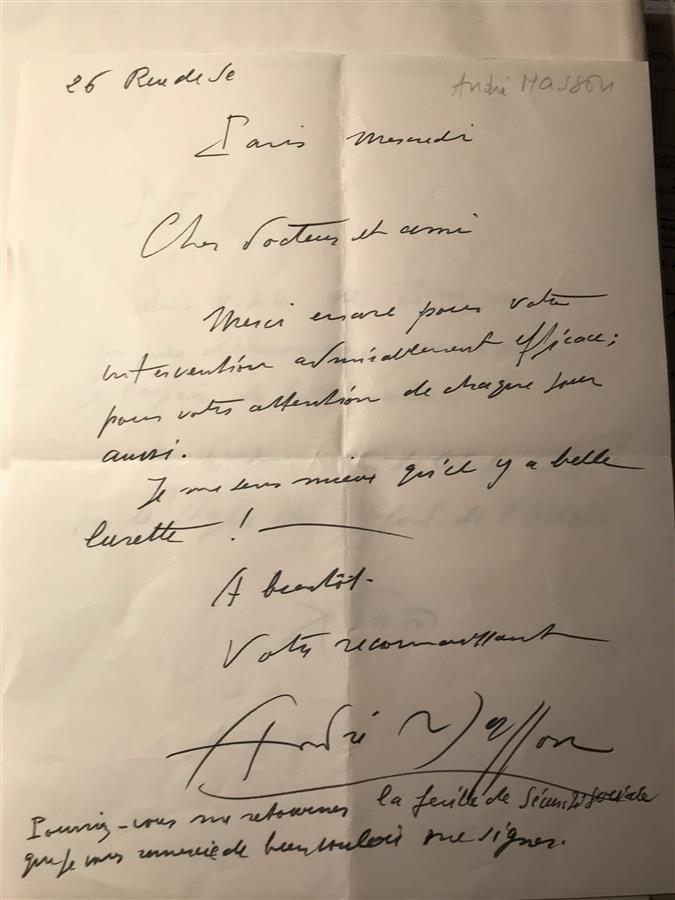 26 Rue de Se
André MASSON
Paris Mercredi
Cher docteur et ami
Merci encore pour votre
intervention admirablement efficace ;
pour votre attention de chaque jour
aussi.
Je me sens mieux qu'il y a belle
lurette !
A bientôt.
Votre reconnaissant
André Masson
Pourriez-vous me retourner la feuille de Sécurité sociale
que je vous remercie de bien vouloir me signer.